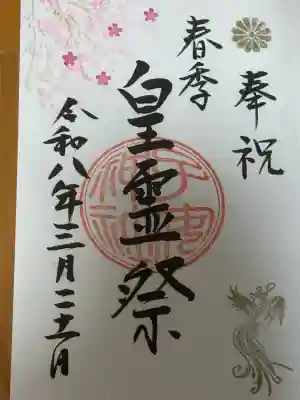 奉祝
春季
皇霊祭
令和八年三月二十一日